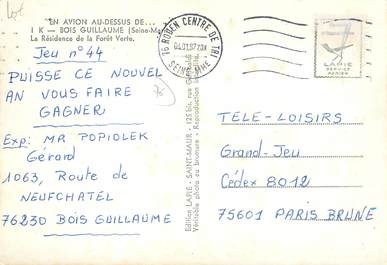 "EN AVION AU-DESSUS DE...
1 K — BOIS GUILLAUME (Seine-Mar
La Résidence de la Forêt Verte.
Jeu n° 44
PUISSE CE NOUVEL
AN VOUS FAIRE
GAGNER
Exp: MR POPIOLEK
Gérard
1063, Route de
NEUFCHATEL
76230 BOIS GUILLAUME
76 ROUEN CENTRE DE TRI
SEINE MME
LAPIE
SERVICE
Edition LAPIE - SAINT-MAUR - 125 bis, rue
Véritable photo au bromure - Reproduction
TELE-LOISIRS
Grand-Jeu
Cédex 8012
75601 PARIS BRUNE